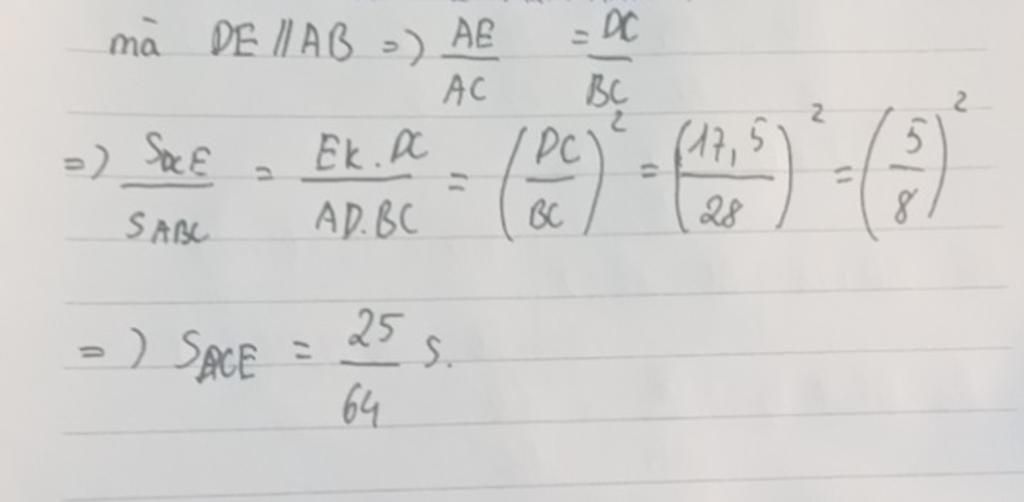 mà DE // AB => AE/AC = DC/BC
=> SDCE/SABC = EK.DC/AD.BC = (DC/BC)² = (17,5/28)² = (5/8)²
=> SDCE = 25/64 S.